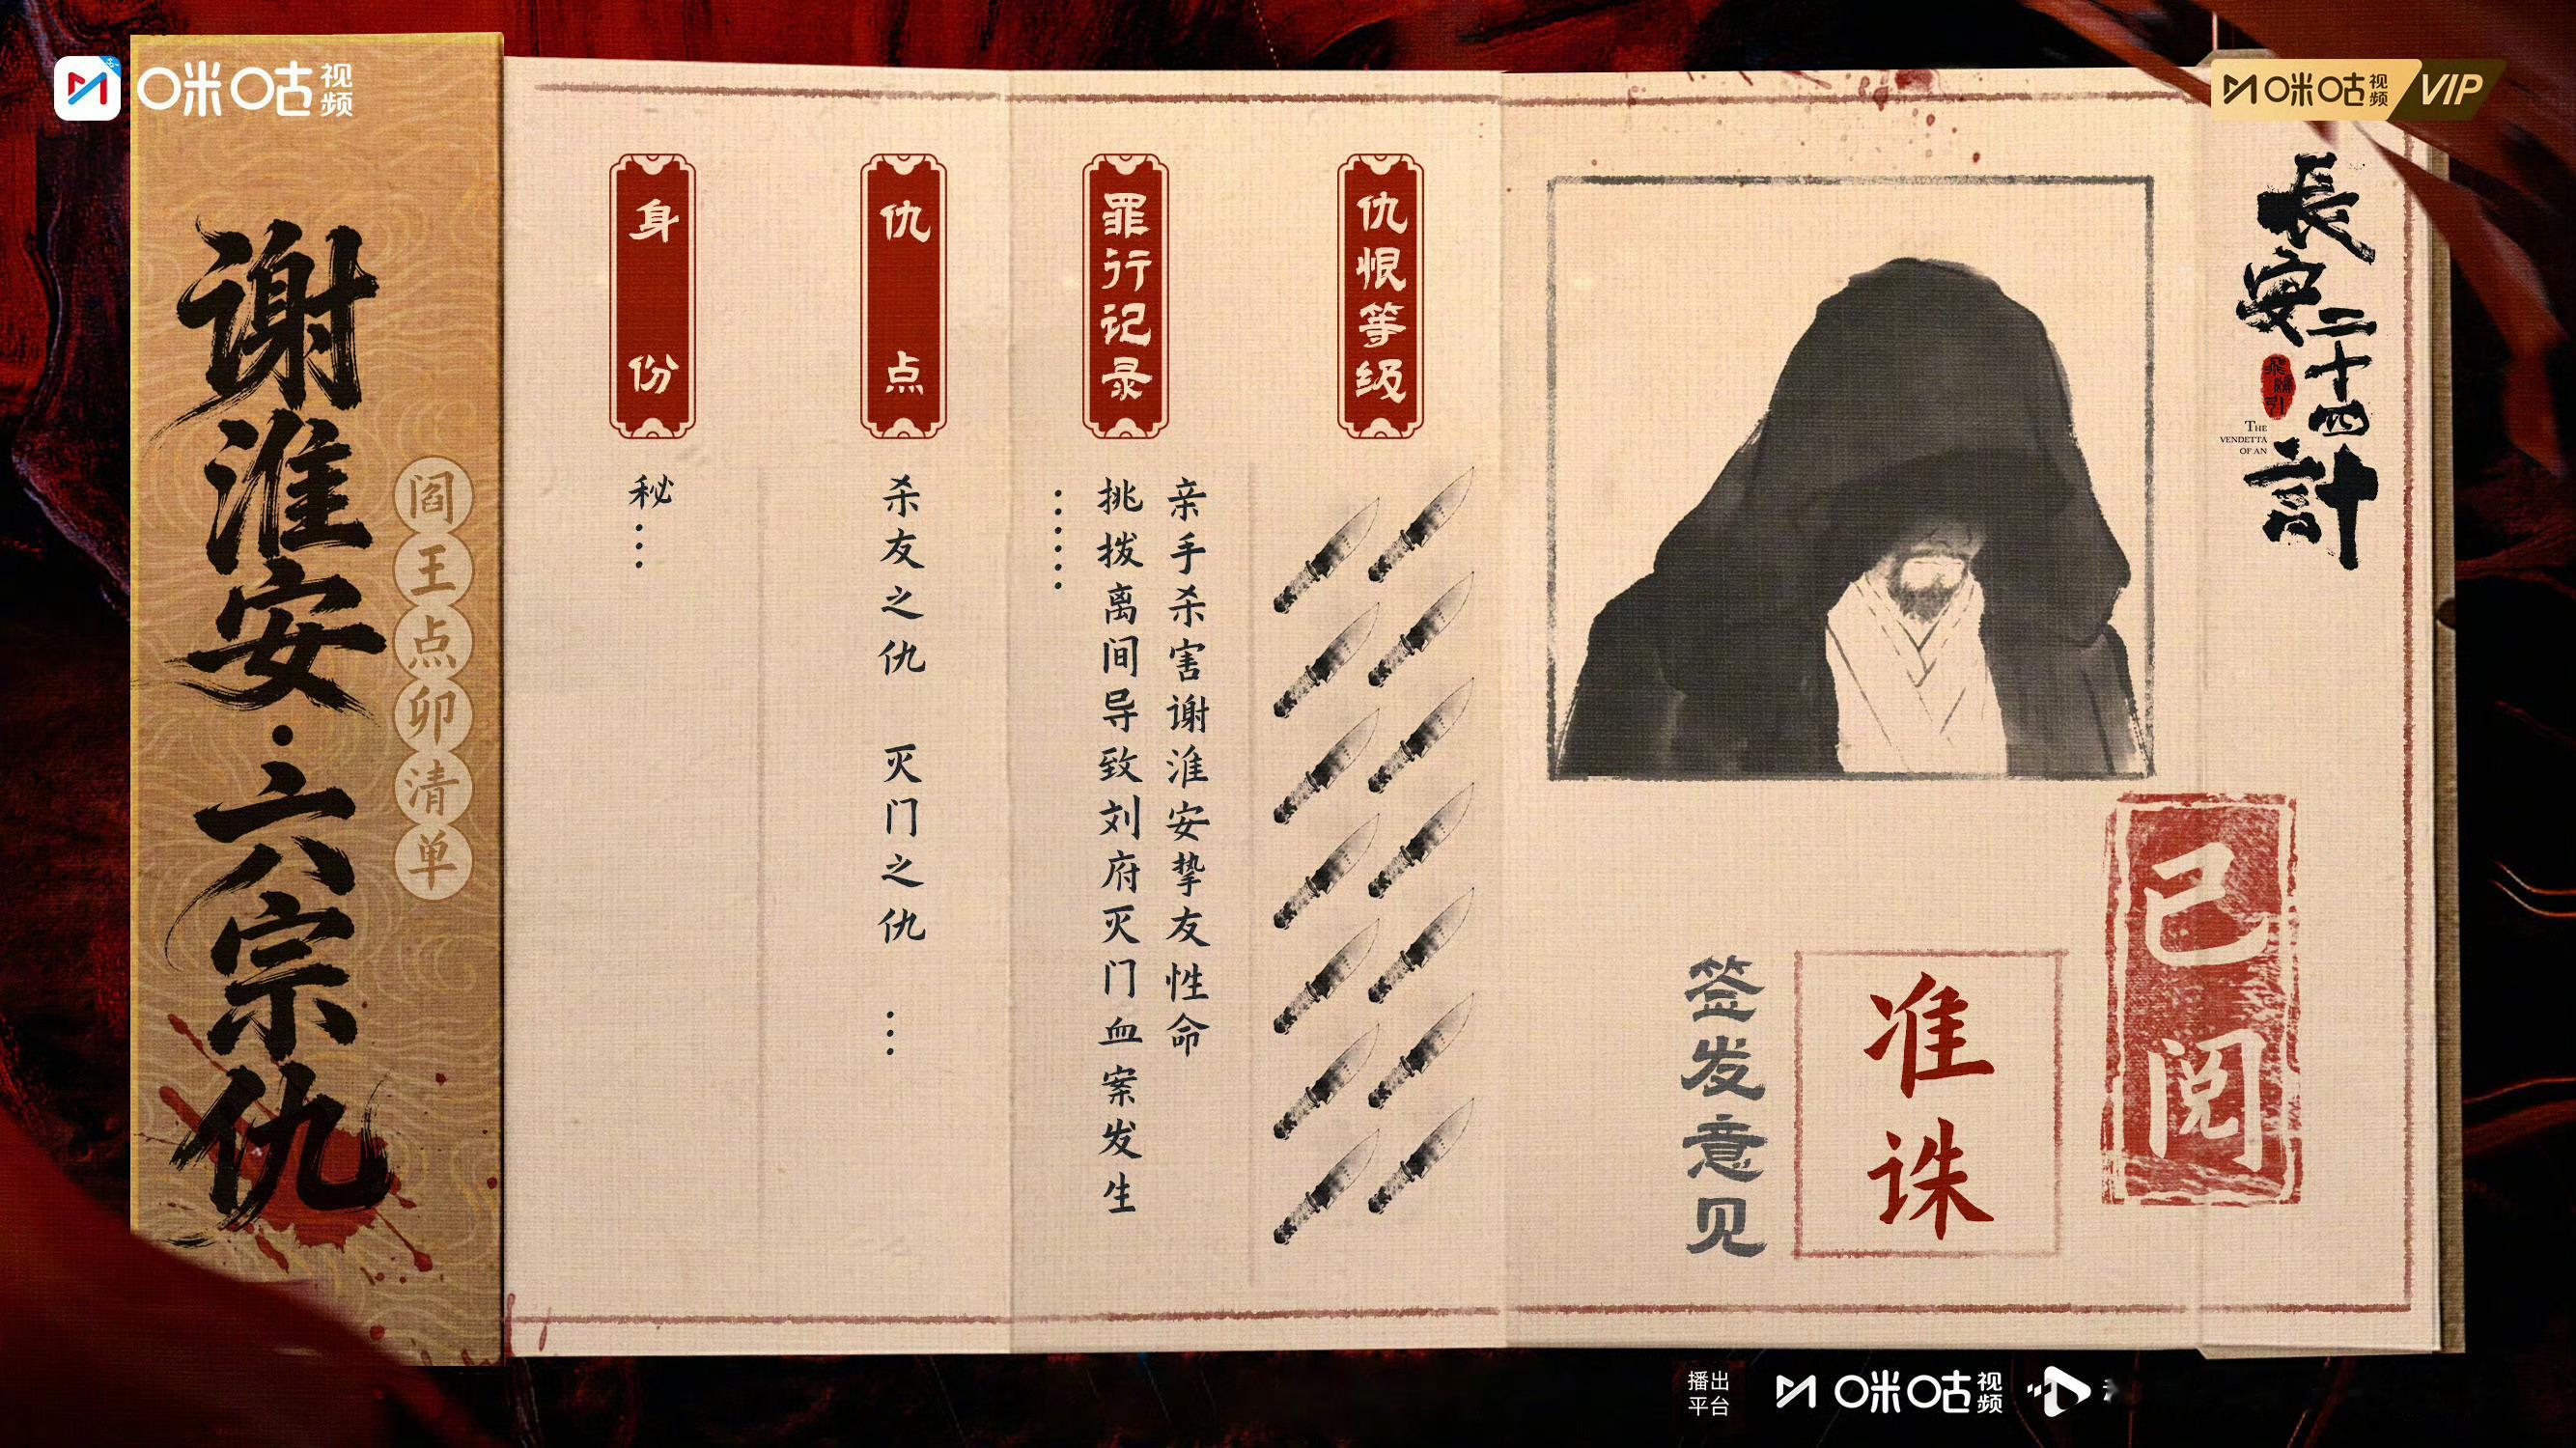 咪咕视频
咪咕视频 VIP
谢淮安·六宗仇
阎王点卯清单
身份
秘…
仇点
杀友之仇 灭门之仇 …
罪行记录
亲手杀害谢淮安挚友性命
挑拨离间导致刘府灭门血案发生
……
仇恨等级
長安二十四計
THE
VENDETTA
OF AN
签发意见
准诛
已阅
播出平台
咪咕视频